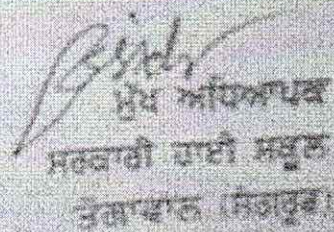 ਮੁੱਖ ਅਧਿਆਪਕ
ਸਰਕਾਰੀ ਹਾਈ ਸਕੂਲ
(ਸੰਗਰੂਰ)